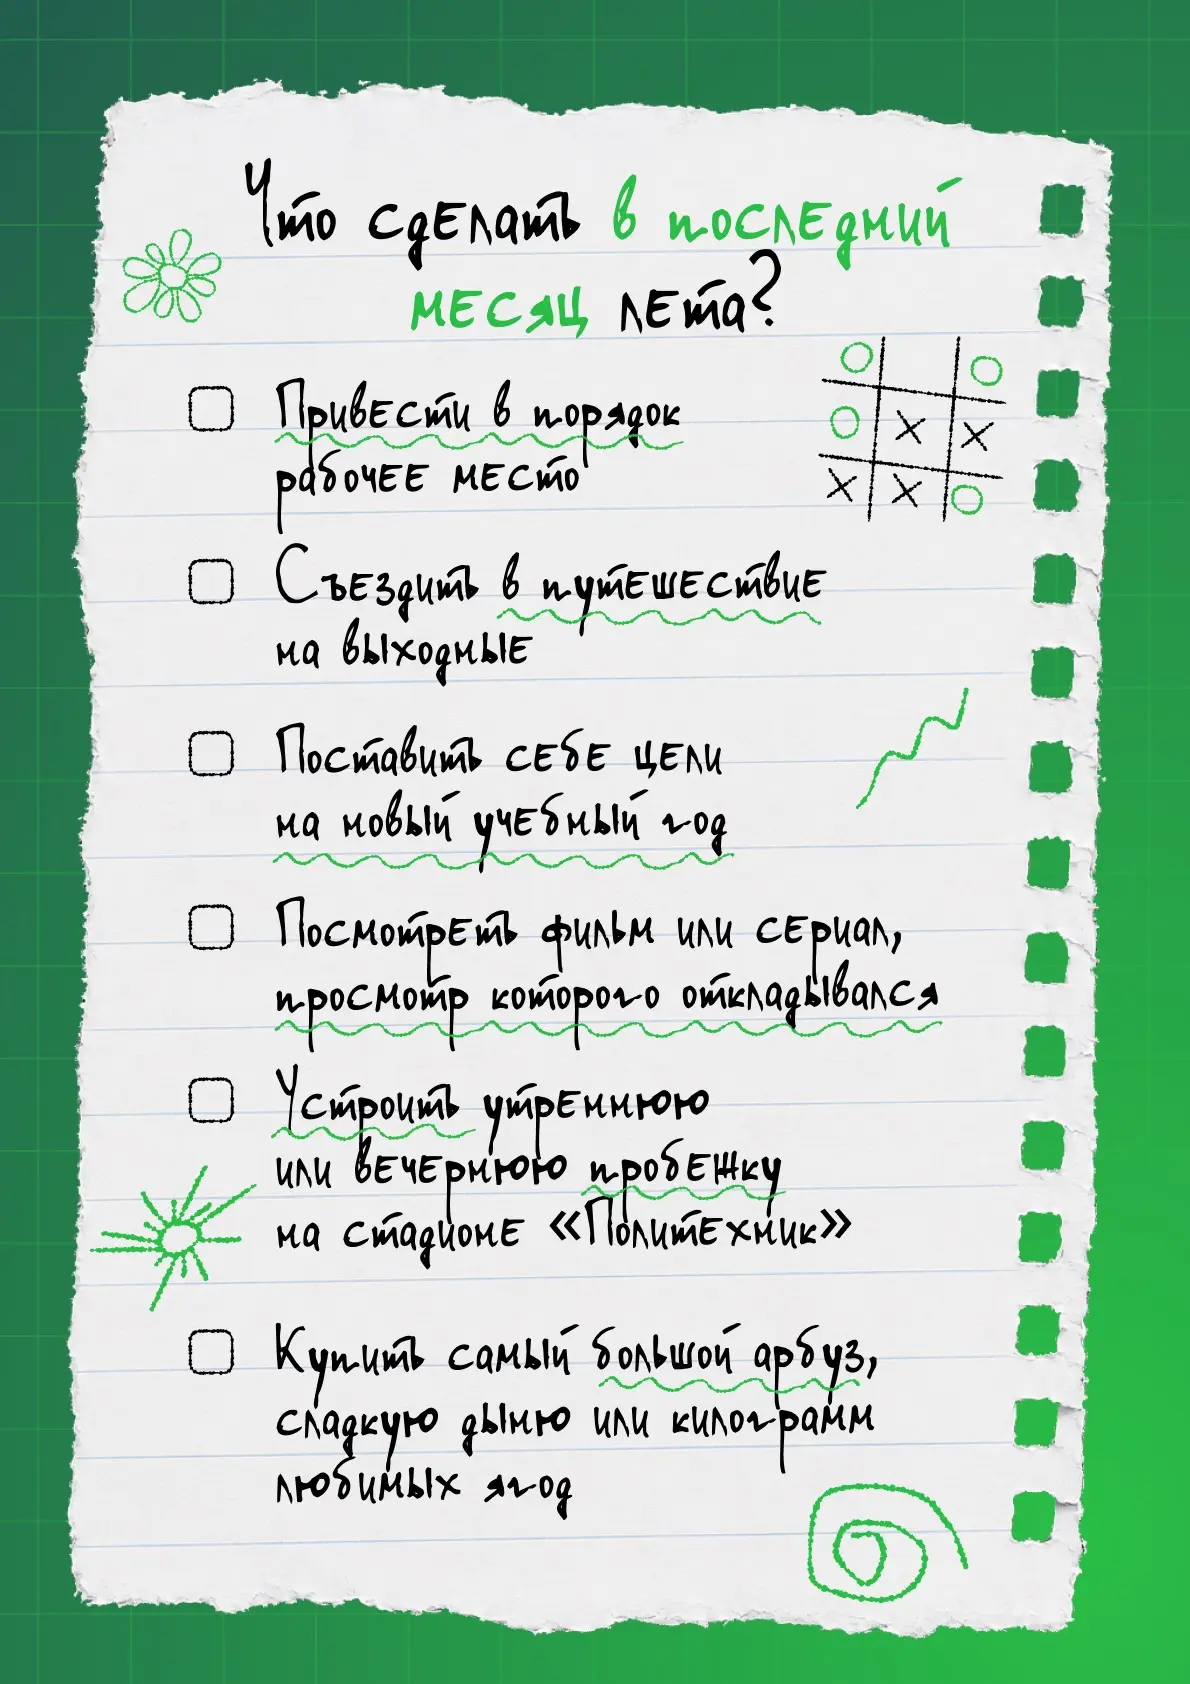 Что сделать в последний
месяц лета?
Привести в порядок
рабочее место
Съездить в путешествие
на выходные
Поставить себе цели
на новый учебный год
Посмотреть фильм или сериал,
просмотр которого откладывался
Устроить утреннюю
или вечернюю пробежку
на стадионе «Политехник»
Купить самый большой арбуз,
сладкую дыню или килограмм
любимых ягод